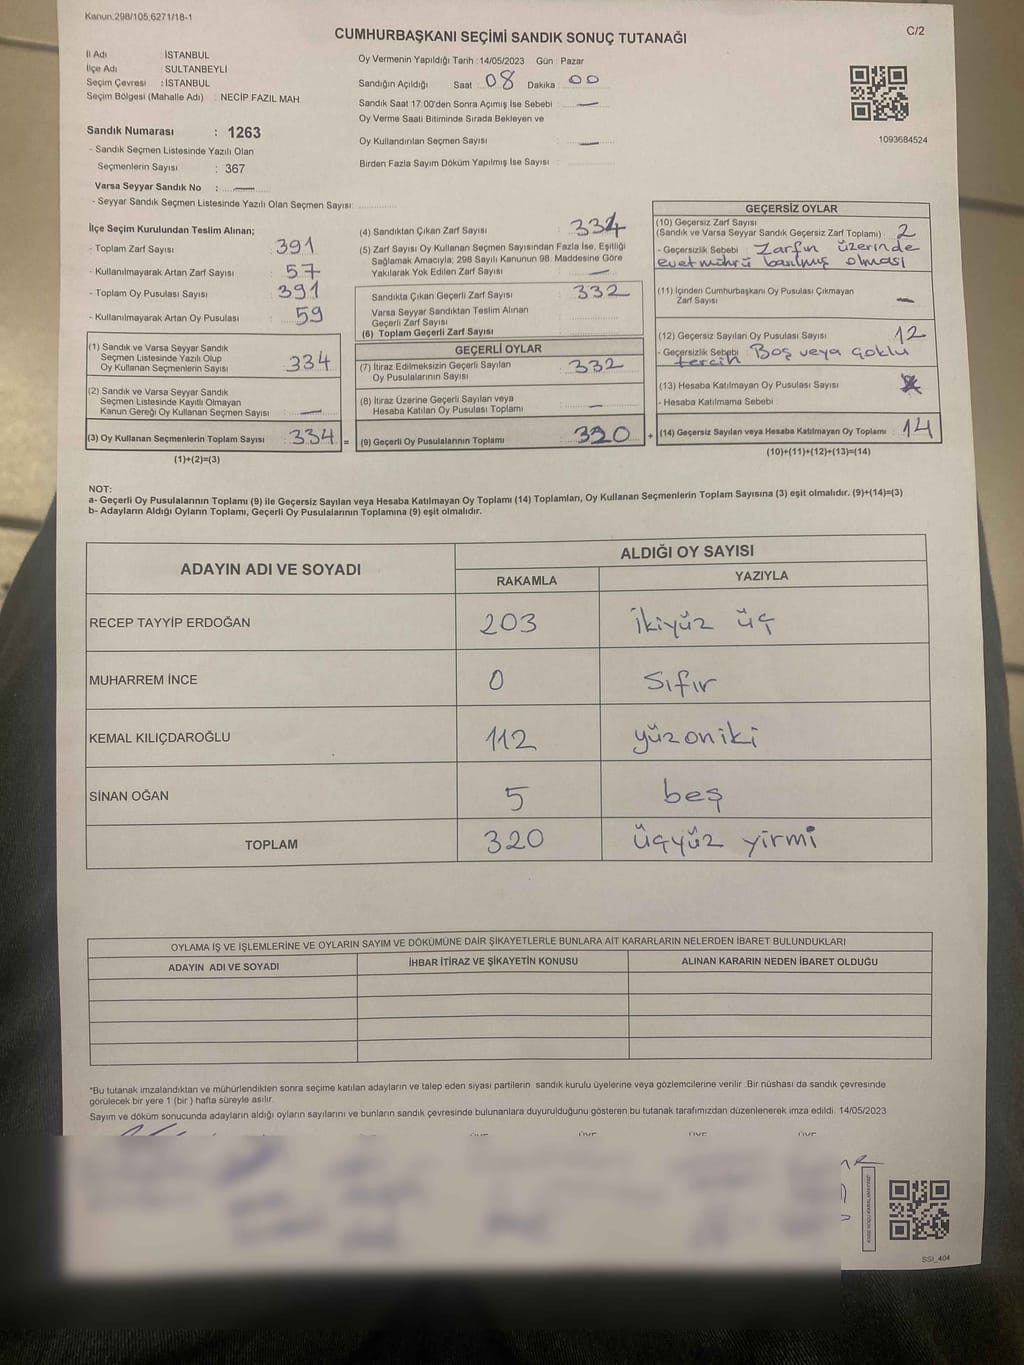 Kanun.298/105,6271/18-1
CUMHURBAŞKANI SEÇİMİ SANDIK SONUÇ TUTANAĞI
C/2
İl Adı : İSTANBUL
İlçe Adı : SULTANBEYLİ
Seçim Çevresi : İSTANBUL
Seçim Bölgesi (Mahalle Adı) : NECİP FAZIL MAH
Sandık Numarası : 1263
- Sandık Seçmen Listesinde Yazılı Olan
Seçmenlerin Sayısı : 367
Varsa Seyyar Sandık No : —
- Seyyar Sandık Seçmen Listesinde Yazılı Olan Seçmen Sayısı:
Oy Vermenin Yapıldığı Tarih :14/05/2023 Gün : Pazar
Sandığın Açıldığı Saat : 08 Dakika : 00
Sandık Saat 17:00'den Sonra Açımış İse Sebebi : —
Oy Verme Saati Bitiminde Sırada Bekleyen ve
Oy Kullandırılan Seçmen Sayısı : —
Birden Fazla Sayım Döküm Yapılmış İse Sayısı :
1093684524
İlçe Seçim Kurulundan Teslim Alınan;
- Toplam Zarf Sayısı : 391
- Kullanılmayarak Artan Zarf Sayısı : 57
- Toplam Oy Pusulası Sayısı : 391
- Kullanılmayarak Artan Oy Pusulası : 59
(1) Sandık ve Varsa Seyyar Sandık
Seçmen Listesinde Yazılı Olup
Oy Kullanan Seçmenlerin Sayısı : 334
(2) Sandık ve Varsa Seyyar Sandık
Seçmen Listesinde Kayıtlı Olmayan
Kanun Gereği Oy Kullanan Seçmen Sayısı : —
(3) Oy Kullanan Seçmenlerin Toplam Sayısı : 334 =
(1)+(2)=(3)
(4) Sandıktan Çıkan Zarf Sayısı : 334
(5) Zarf Sayısı Oy Kullanan Seçmen Sayısından Fazla İse, Eşitliği
Sağlamak Amacıyla, 298 Sayılı Kanunun 98. Maddesine Göre
Yakılarak Yok Edilen Zarf Sayısı : —
Sandıkta Çıkan Geçerli Zarf Sayısı : 332
Varsa Seyyar Sandıktan Teslim Alınan
Geçerli Zarf Sayısı :
(6) Toplam Geçerli Zarf Sayısı :
GEÇERLİ OYLAR
(7) İtiraz Edilmeksizin Geçerli Sayılan
Oy Pusulalarının Sayısı : 332
(8) İtiraz Üzerine Geçerli Sayılan veya
Hesaba Katılan Oy Pusulası Toplamı : —
(9) Geçerli Oy Pusulalarının Toplamı : 320 +
GEÇERSİZ OYLAR
(10) Geçersiz Zarf Sayısı
(Sandık ve Varsa Seyyar Sandık Geçersiz Zarf Toplamı) : 2
- Geçersizlik Sebebi : Zarfın üzerinde
evet mührü basılmış olması
(11) İçinden Cumhurbaşkanı Oy Pusulası Çıkmayan
Zarf Sayısı : —
(12) Geçersiz Sayılan Oy Pusulası Sayısı : 12
- Geçersizlik Sebebi : Boş veya çoklu
tercih
(13) Hesaba Katılmayan Oy Pusulası Sayısı :
- Hesaba Katılmama Sebebi :
(14) Geçersiz Sayılan veya Hesaba Katılmayan Oy Toplamı : 14
(10)+(11)+(12)+(13)=(14)
NOT:
a- Geçerli Oy Pusulalarının Toplamı (9) ile Geçersiz Sayılan veya Hesaba Katılmayan Oy Toplamı (14) Toplamları, Oy Kullanan Seçmenlerin Toplam Sayısına (3) eşit olmalıdır. (9)+(14)=(3)
b- Adayların Aldığı Oyların Toplamı, Geçerli Oy Pusulalarının Toplamına (9) eşit olmalıdır.
ADAYIN ADI VE SOYADI
ALDIĞI OY SAYISI
RAKAMLA YAZIYLA
RECEP TAYYİP ERDOĞAN 203 ikiyüz üç
MUHARREM İNCE 0 Sıfır
KEMAL KILIÇDAROĞLU 112 yüzoniki
SİNAN OĞAN 5 beş
TOPLAM 320 üçyüz yirmi
OYLAMA İŞ VE İŞLEMLERİNE VE OYLARIN SAYIM VE DÖKÜMÜNE DAİR ŞİKAYETLERLE BUNLARA AİT KARARLARIN NELERDEN İBARET BULUNDUKLARI
ADAYIN ADI VE SOYADI İHBAR İTİRAZ VE ŞİKAYETİN KONUSU ALINAN KARARIN NEDEN İBARET OLDUĞU
*Bu tutanak imzalandıktan ve mühürlendikten sonra seçime katılan adayların ve talep eden siyasi partilerin sandık kurulu üyelerine veya gözlemcilerine verilir .Bir nüshası da sandık çevresinde
görülecek bir yere 1 (bir ) hafta süreyle asılır.
Sayım ve döküm sonucunda adayların aldığı oyların sayılarını ve bunların sandık çevresinde bulunanlara duyurulduğunu gösteren bu tutanak tarafımızdan düzenlenerek imza edildi. 14/05/2023
SSI_404